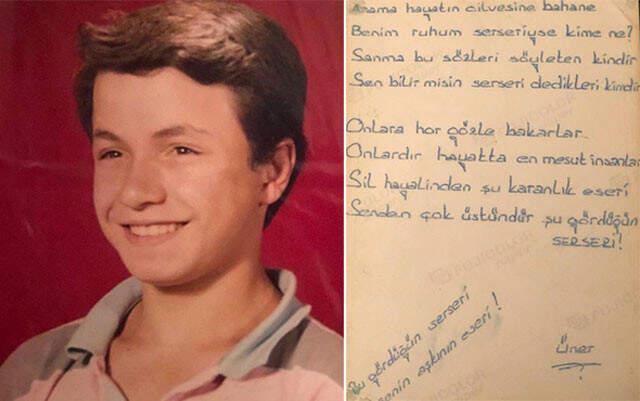 Arama hayatın cilvesine bahane
Benim ruhum serseriyse kime ne?
Sanma bu sözleri söyleten kindir
Sen bilir misin serseri dedikleri kimdir
Onlara hor gözle bakarlar
Onlardır hayatta en mesut insanlar
Sil hayalinden şu karanlık eseri
Senden çok üstündür şu gördüğün
SERSERİ!
Bu gördüğün serseri
senin aşkının eseri!
Üner